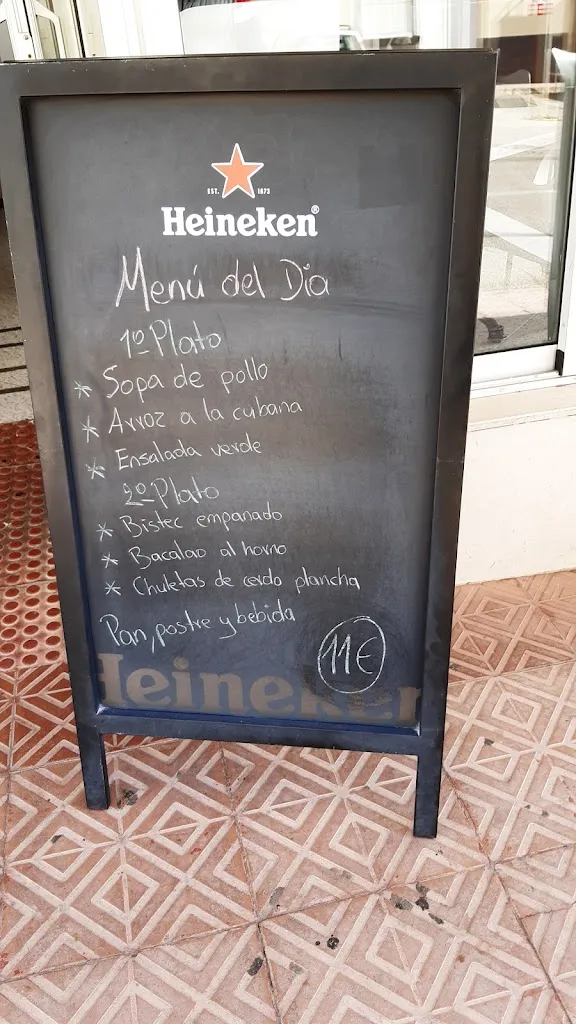 EST. 1873
Heineken®
Menú del Día
1º Plato
* Sopa de pollo
* Arroz a la cubana
* Ensalada verde
2º Plato
* Bistec empanado
* Bacalao al horno
* Chuletas de cerdo plancha
Pan, postre y bebida
11€
Heineken